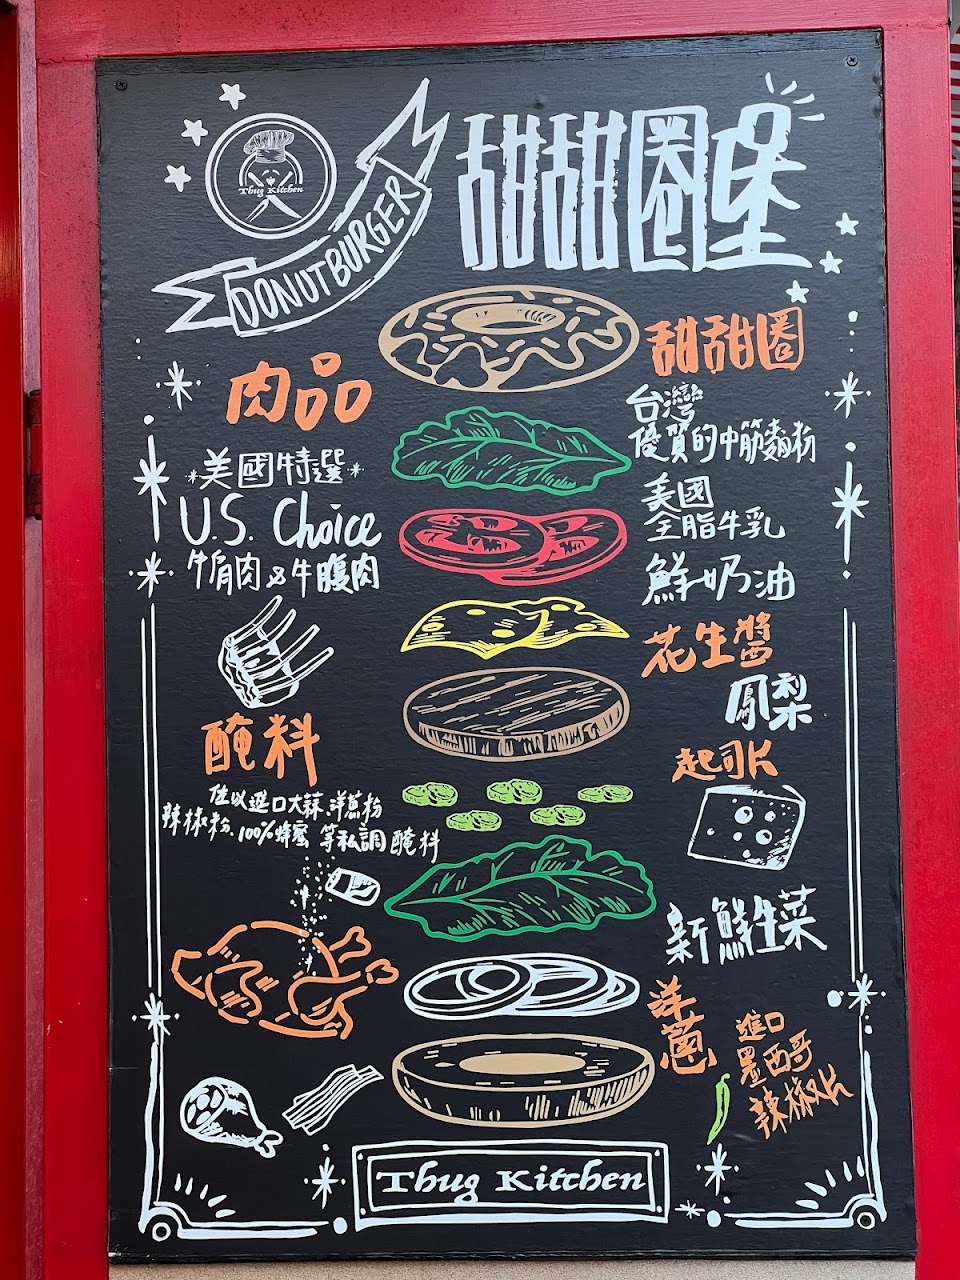 Thug Kitchen
DONUT BURGER
甜甜圈堡
肉品
美國特選
U.S. Choice
牛肩肉&牛腹肉
醃料
佐以進口大蒜.洋蔥粉
辣椒粉.100%蜂蜜 等私調醃料
甜甜圈
台灣
優質的中筋麵粉
美國
全脂牛乳
鮮奶油
花生醬
鳳梨
起司片
新鮮生菜
洋蔥
進口
墨西哥
辣椒片
Thug Kitchen